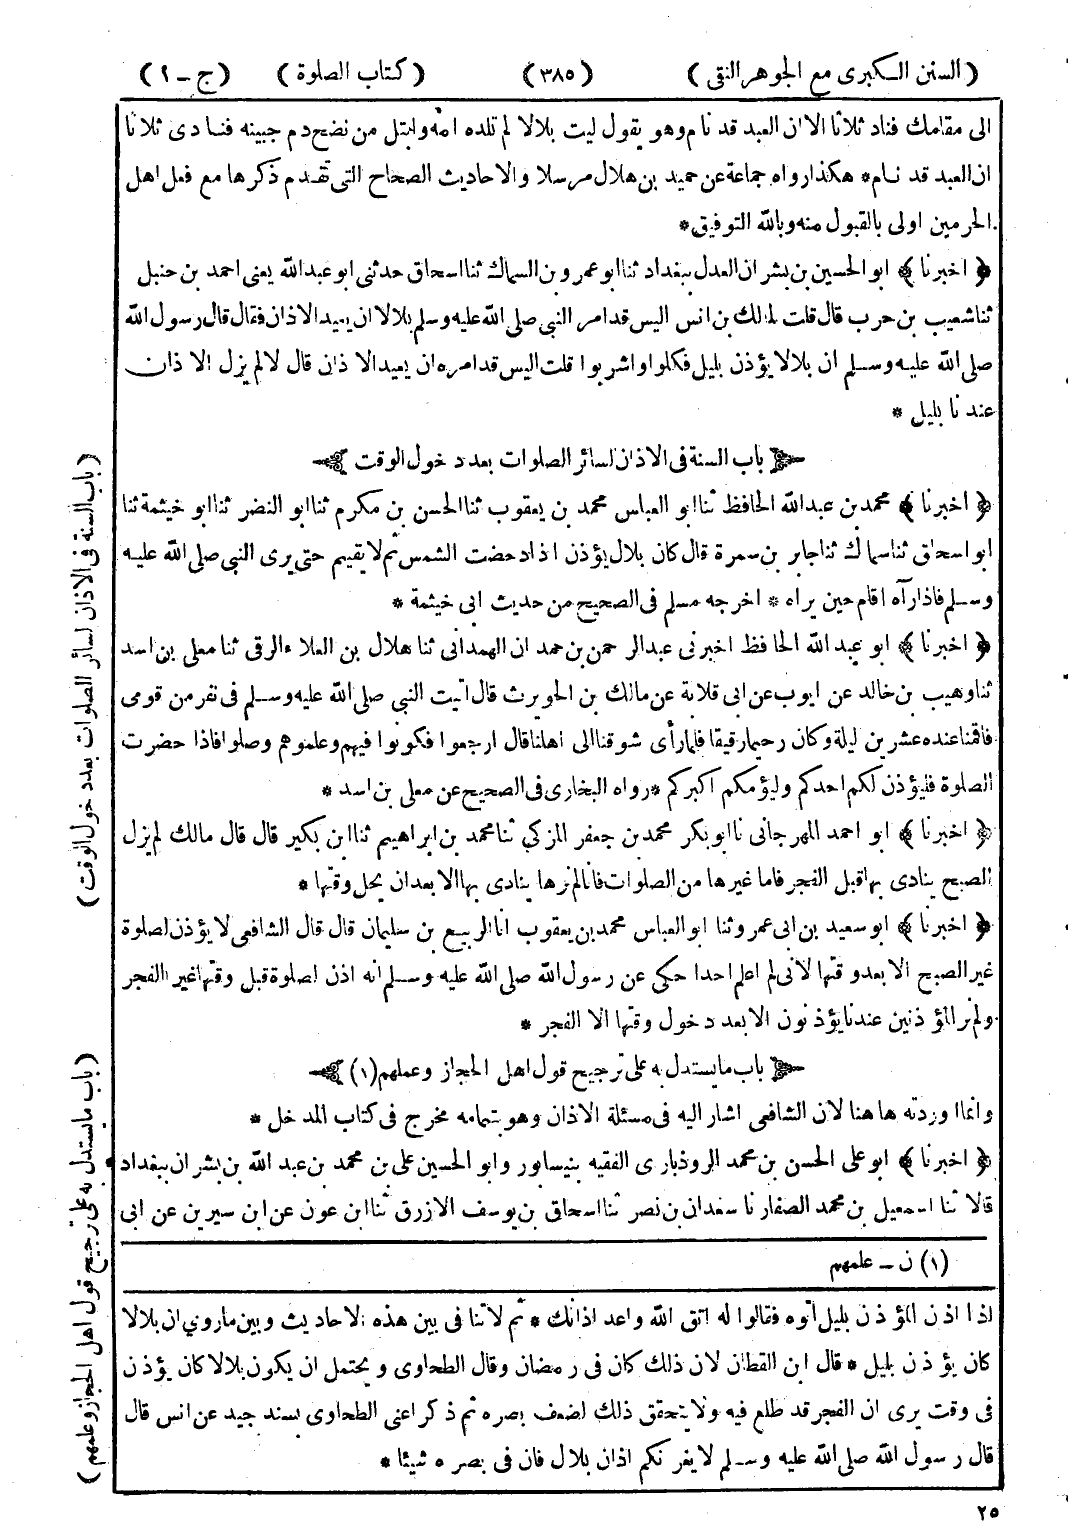 (السنن الكبرى مع الجوهر النقى) (٣٨٥) (كتاب الصلوة) (ج - ٢)
الى مقامك فناد ثلاثا الا ان العبد قد نام وهو يقول ليت بلالا لم تلده امه وابتل من نضح دم جبينه فنادى ثلاثا
ان العبد قد نام * هكذا رواه جماعة عن حميد بن هلال مرسلا والاحاديث الصحاح التى تقدم ذكرها مع فعل اهل
الحرمين اولى بالقبول منه وبالله التوفيق *
﴿ اخبرنا ﴾ ابو الحسين بن بشران العدل ببغداد ثنا ابو عمرو بن السماك ثنا اسحاق حدثنى ابو عبدالله يعنى احمد بن حنبل
ثنا شعيب بن حرب قال قلت لمالك بن انس اليس قد امر النبى صلى الله عليه وسلم بلالا ان يعيد الاذان فقال قال رسول الله
صلى الله عليه وسلم ان بلالا يؤذن بليل فكلوا واشربوا قلت اليس قد امره ان يعيد الاذان قال لا لم يزل الاذان
عندنا بليل *
باب السنة فى الاذان لسائر الصلوات بعد دخول الوقت
﴿ اخبرنا ﴾ محمد بن عبدالله الحافظ ثنا ابو العباس محمد بن يعقوب ثنا الحسن بن مكرم ثنا ابو النضر ثنا ابو خيثمة ثنا
ابو اسحاق ثنا سماك ثنا جابر بن سمرة قال كان بلال يؤذن اذا دحضت الشمس ثم لا يقيم حتى يرى النبى صلى الله عليه
وسلم فاذا رآه اقام حين يراه * اخرجه مسلم فى الصحيح من حديث ابى خيثمة *
﴿ اخبرنا ﴾ ابو عبد الله الحافظ اخبرنى عبد الرحمن بن حمدان الهمدانى ثنا هلال بن العلاء الرقى ثنا معلى بن اسد
ثنا وهيب بن خالد عن ايوب عن ابى قلابة عن مالك بن الحويرث قال اتيت النبى صلى الله عليه وسلم فى نفر من قومى
فاقمنا عنده عشرين ليلة وكان رحيما رقيقا فلما رأى شوقنا الى اهلنا قال ارجعوا فكونوا فيهم وعلموهم وصلوا فاذا حضرت
الصلوة فليؤذن لكم احدكم وليؤمكم اكبركم * رواه البخارى فى الصحيح عن معلى بن اسد *
﴿ اخبرنا ﴾ ابو احمد المهرجانى انا ابو بكر محمد بن جعفر المزكى ثنا محمد بن ابراهيم ثنا ابن بكير قال قال مالك لم يزل
الصبح ينادى بها قبل الفجر فاما غيرها من الصلوات فانا لم نرها ينادى بها الا بعد ان يحل وقتها *
﴿ اخبرنا ﴾ ابو سعيد بن ابى عمرو ثنا ابو العباس محمد بن يعقوب انا الربيع بن سليمان قال قال الشافعى لا يؤذن لصلوة
غير الصبح الا بعد وقتها لانى لم اعلم احدا حكى عن رسول الله صلى الله عليه وسلم انه اذن لصلوة قبل وقتها غير الفجر
ولم نر المؤذنين عندنا يؤذنون الا بعد دخول وقتها الا الفجر *
باب ما يستدل به على ترجيح قول اهل الحجاز وعملهم (١)
وانما اوردته ها هنا لان الشافعى اشار اليه فى مسئلة الاذان وهو بتمامه مخرج فى كتاب المدخل *
﴿ اخبرنا ﴾ ابو على الحسن بن محمد الروذبارى الفقيه بنيسابور وابو الحسين على بن محمد بن عبد الله بن بشران ببغداد
قالا ثنا اسمعيل بن محمد الصفار نا سعدان بن نصر ثنا اسحاق بن يوسف الازرق ثنا ابن عون عن ابن سيرين عن ابى
(١) ن - علمهم
اذا اذن المؤذن بليل اتوه فقالوا له اتق الله واعد اذانك * ثم لا تنافى بين هذه الاحاديث وبين ما روي ان بلالا
كان يؤذن بليل * قال ابن القطان لان ذلك كان فى رمضان وقال الطحاوى ويحتمل ان يكون بلالا كان يؤذن
فى وقت يرى ان الفجر قد طلع فيه ولا يتحقق ذلك لضعف بصره ثم ذكر اعنى الطحاوى بسند جيد عن انس قال
قال رسول الله صلى الله عليه وسلم لا يغرنكم اذان بلال فان فى بصره شيئا *
٢٥
(باب السنة فى الاذان لسائر الصلوات بعد دخول الوقت)
(باب ما يستدل به على ترجيح قول اهل الحجاز وعلمهم)